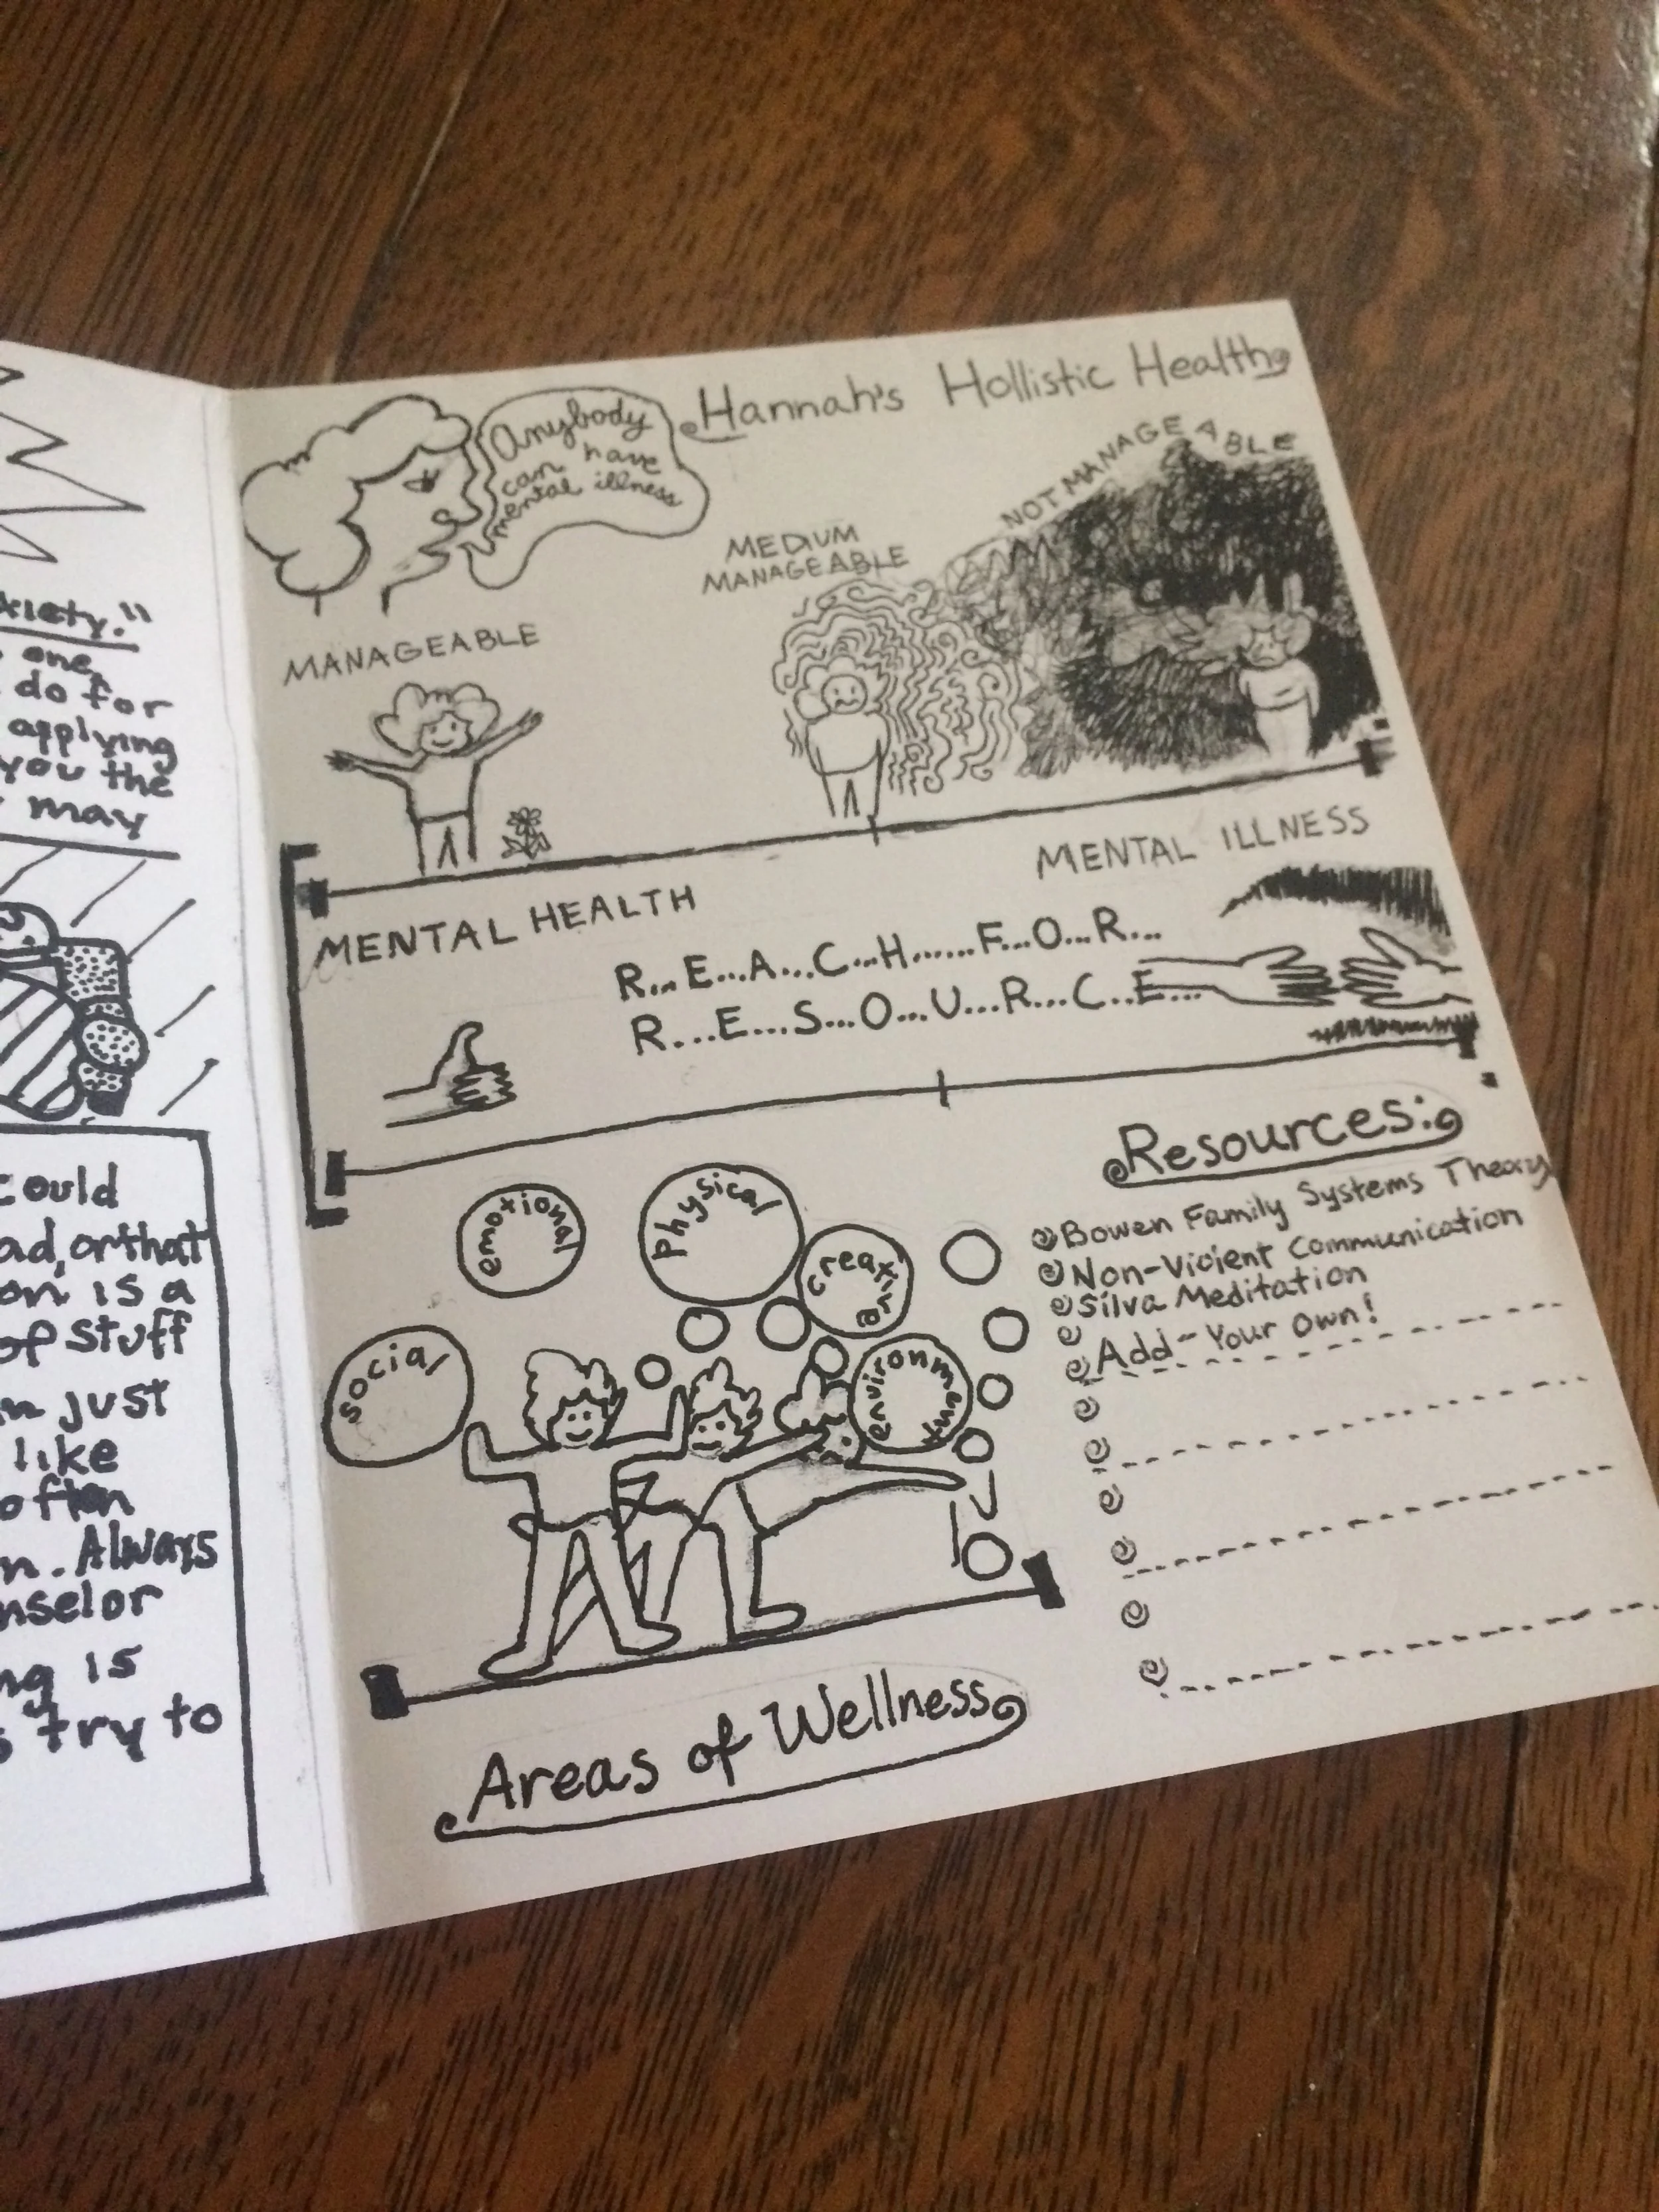 xiety."
one
do for
applying
you the
may
could
ad, or that
on is a
of stuff
n just
like
often
n. Always
nselor
ng is
s try to
Hannah's Hollistic Health
Anybody
can have
mental illness
MANAGEABLE
MEDIUM
MANAGEABLE
NOT MANAGEABLE
MENTAL HEALTH
MENTAL ILLNESS
R...E...A...C...H......F...O...R...
R...E...S...O...U...R...C...E...
emotional
Physical
creative
social
environment
Resources:
Bowen Family Systems Theory
Non-Violent Communication
Silva Meditation
Add-Your own!
Areas of Wellness